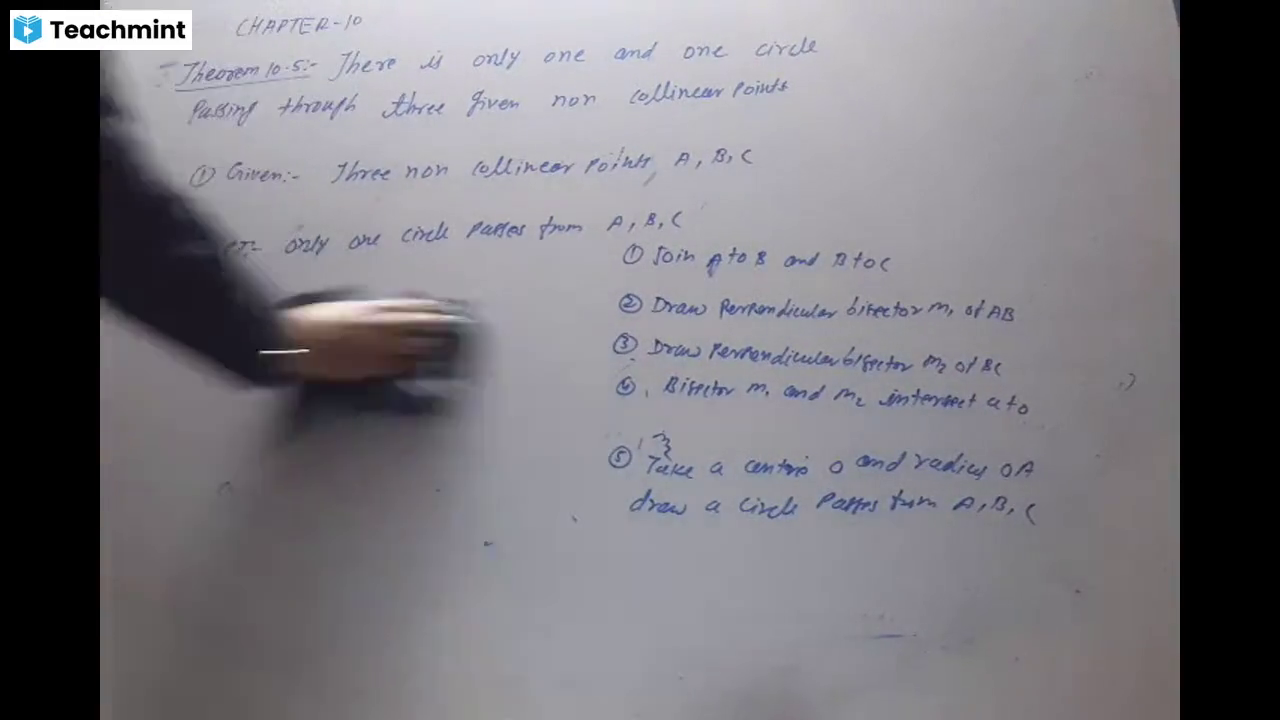 Teachmint
CHAPTER-10
Theorem 10.5:- There is only one and one circle
Passing through three given non collinear points
① Given:- Three non collinear points, A, B, C
PT:- only one circle passes from A, B, C
① Join A to B and B to C
② Draw Perpendicular bisector m₁ of AB
③ Draw Perpendicular bisector m₂ of BC
④ Bisector m₁ and m₂ intersect at o
⑤ Take a centre o and radius OA
draw a circle passes from A, B, C